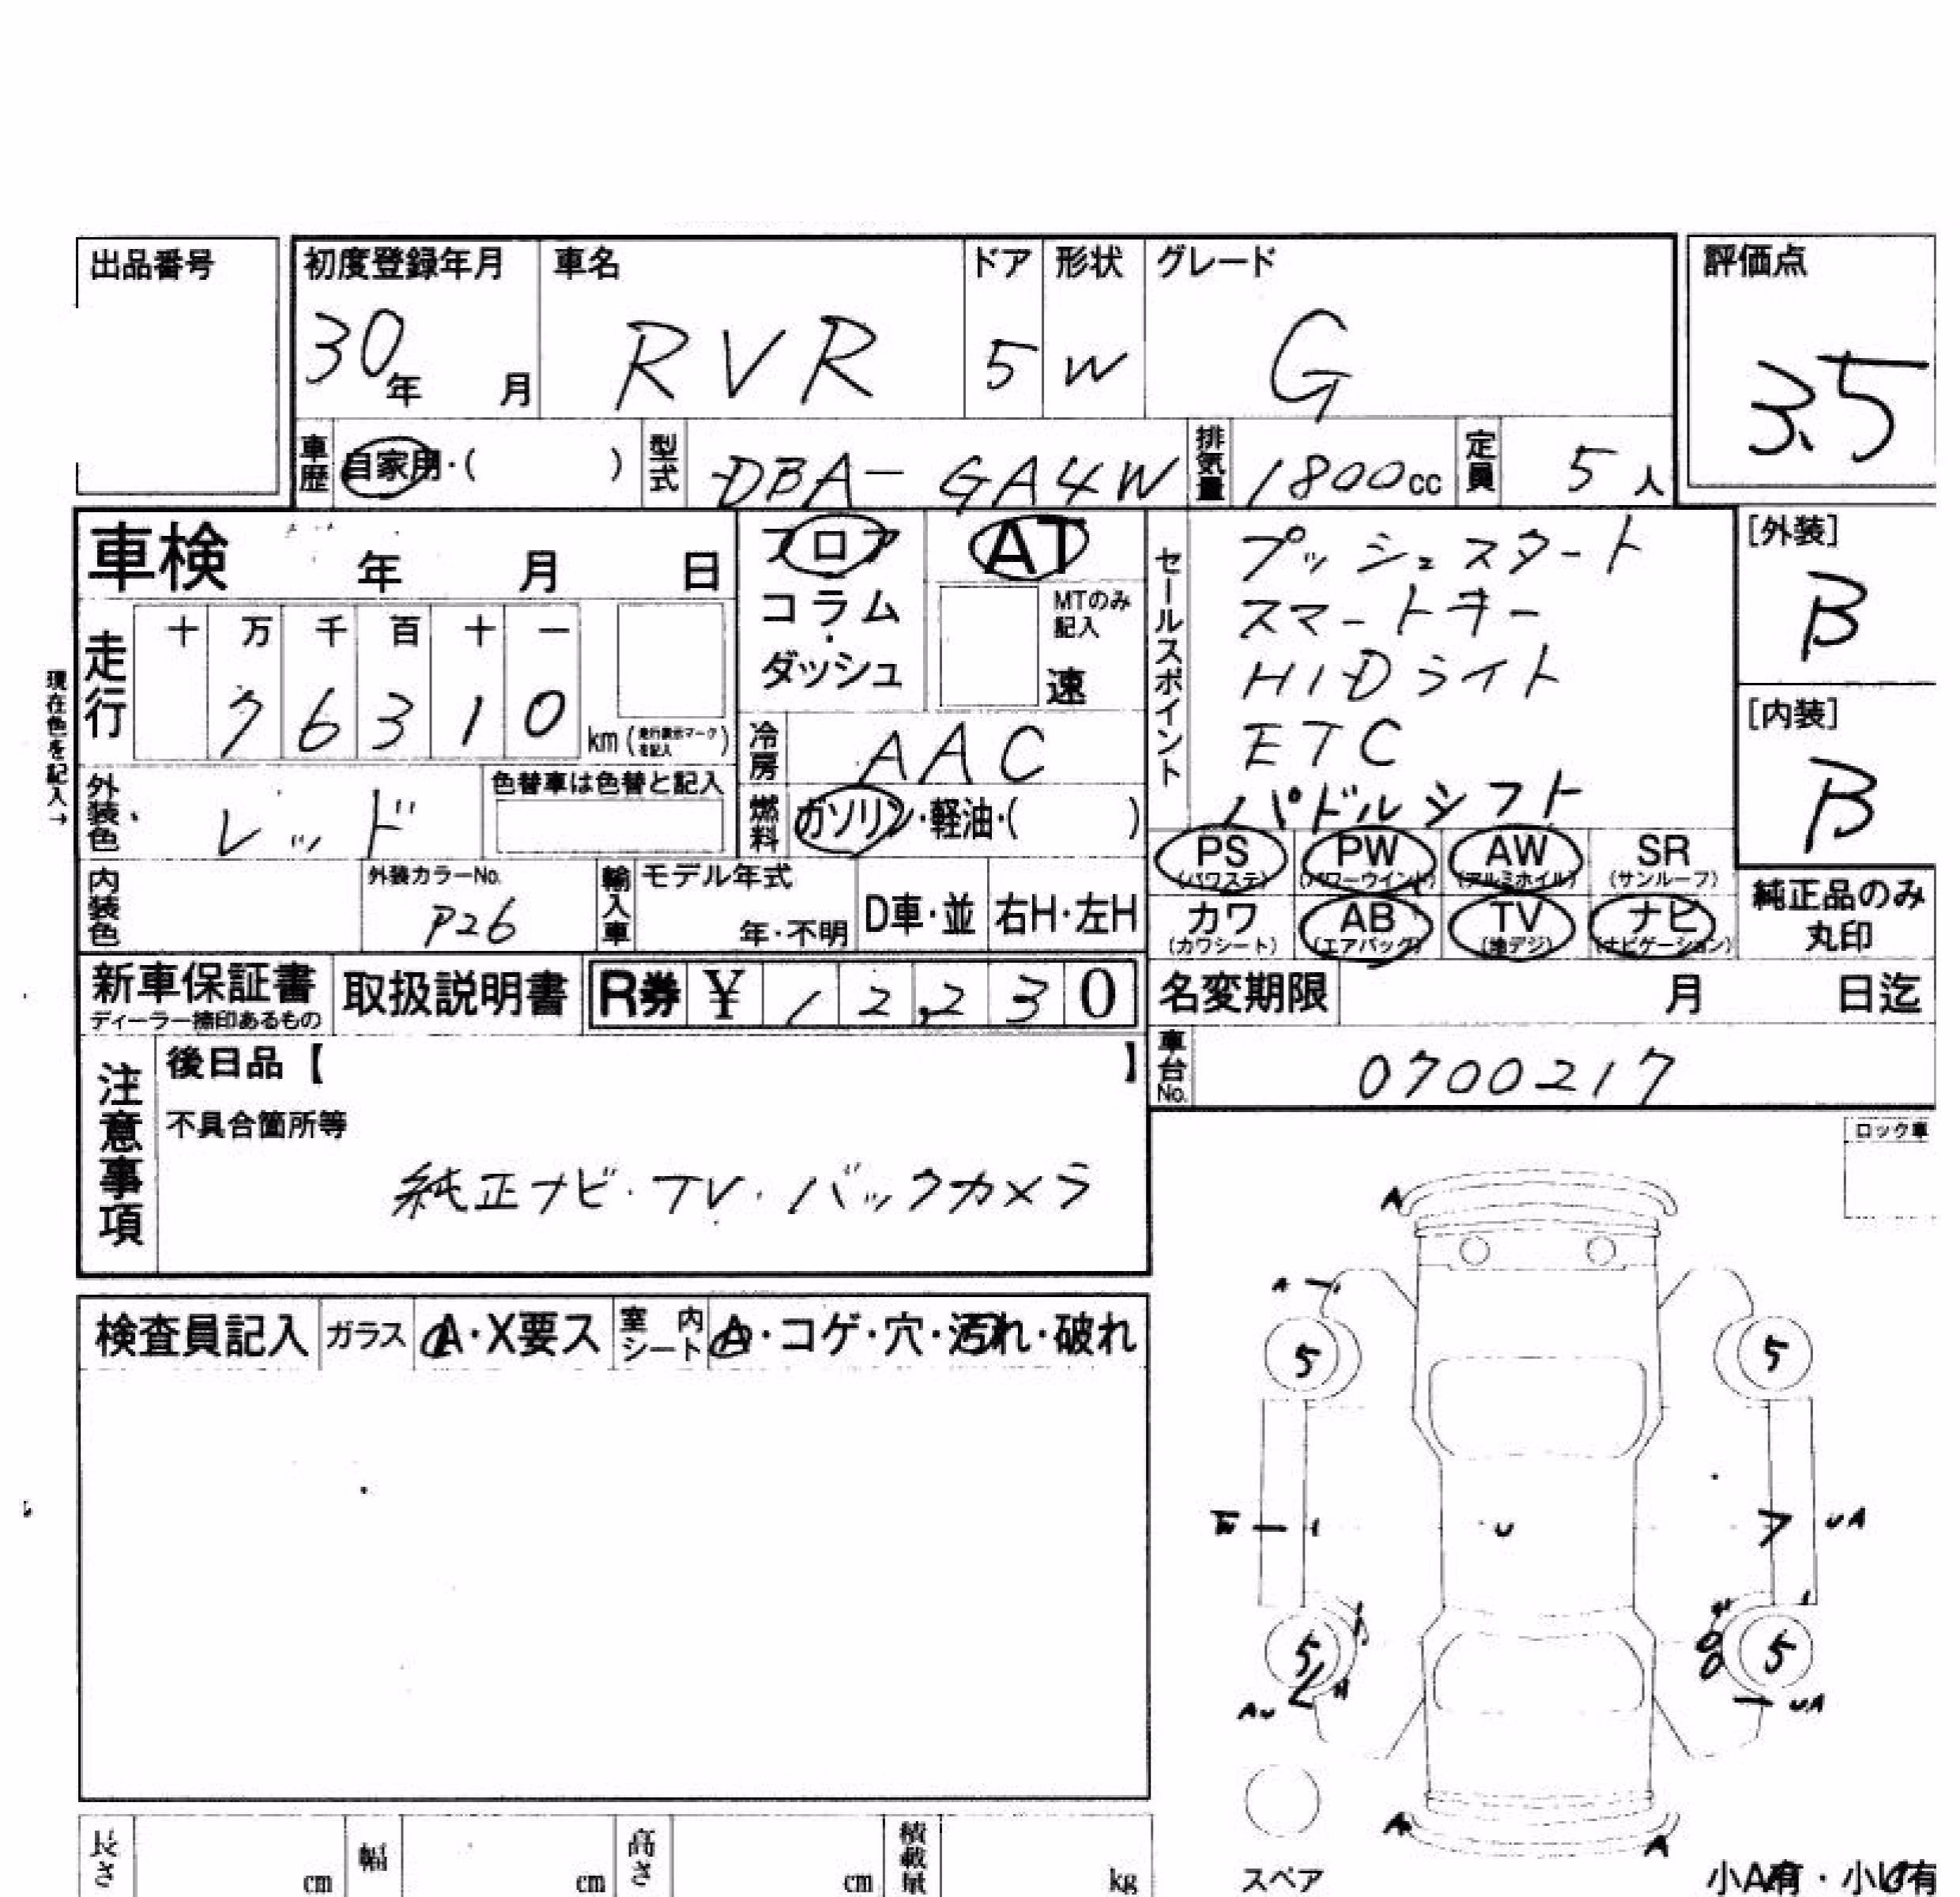 出品番号
初度登録年月 車名 ドア 形状 グレード 評価点
30年 月 RVR 5 W G 3.5
車歴 自家用・( ) 型式 DBA-GA4W 排気量 1800cc 定員 5人
車検 年 月 日
フロア AT
コラム・ダッシュ
MTのみ記入 速
セールスポイント
プッシュスタート
スマートキー
HIDライト
ETC
パドルシフト
[外装]
B
[内装]
B
現在色を記入→
走行 十 万 千 百 十 一
76310 km (走行表示マークを記入)
冷房 AAC
外装色 レッド 色替車は色替と記入
燃料 ガソリン・軽油・( )
PS (パワステ) PW (パワーウインド) AW (アルミホイル) SR (サンルーフ)
カワ (カワシート) AB (エアバッグ) TV (地デジ) ナビ (ナビゲーション)
純正品のみ
丸印
内装色 外装カラーNo. P26 輸入車 モデル年式 年・不明 D車・並 右H・左H
新車保証書 取扱説明書 R券 ¥ 12,230
ディーラー捺印あるもの
名変期限 月 日迄
車台No. 0700217
注意事項
後日品【 】
不具合箇所等
純正ナビ・TV・バックカメラ
ロック車
検査員記入 ガラス A・X要ス 室内シート A・コゲ・穴・汚れ・破れ
A
A
5 5
UA
U
5 5
AU UA
A A
スペア
小A有・小U有
長さ cm 幅 cm 高さ cm 積載量 kg